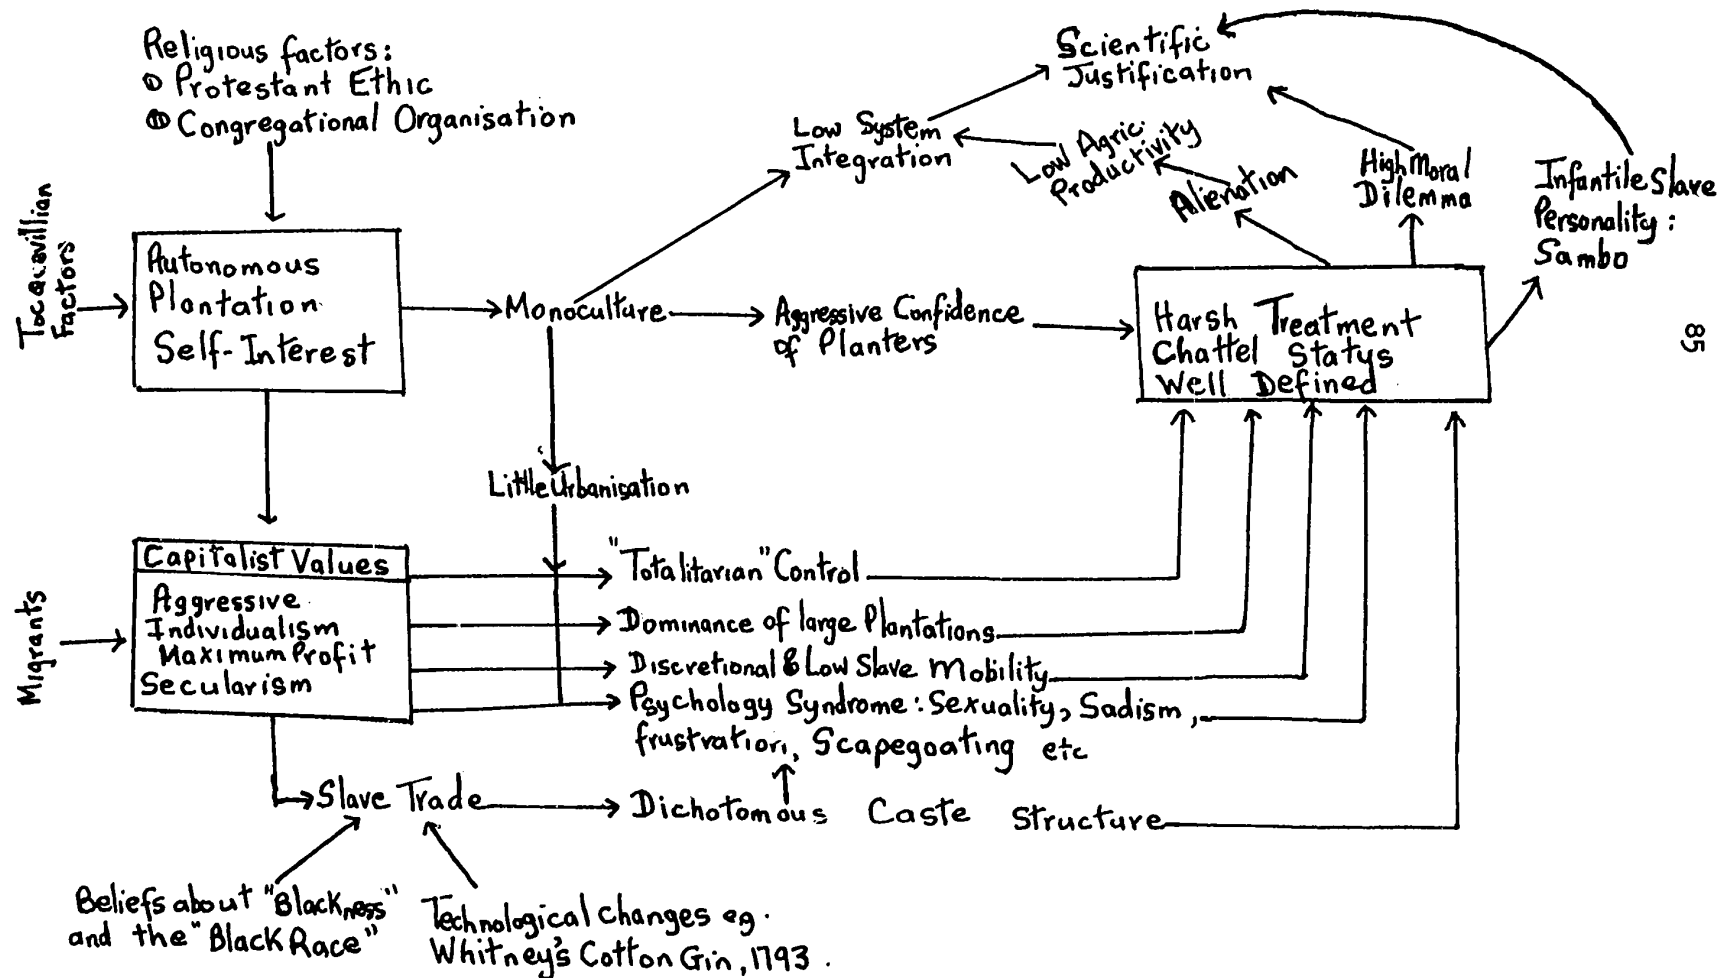 Religious factors:
① Protestant Ethic
⑪ Congregational Organisation
Tocqusvillian
Factors
Autonomous
Plantation
Self-Interest
Monoculture
Aggressive Confidence
of Planters
Low System
Integration
Scientific
Justification
Low Agric.
Productivity
Alienation
High Moral
Dilemma
Infantile Slave
Personality:
Sambo
Harsh Treatment
Chattel Status
Well Defined
85
Little Urbanisation
Migrants
Capitalist Values
Aggressive
Individualism
Maximum Profit
Secularism
"Totalitarian" Control
Dominance of large Plantations
Discretional & Low Slave Mobility
Psychology Syndrome: Sexuality, Sadism,
frustration, Scapegoating etc
Slave Trade
Dichotomous Caste Structure
Beliefs about "Blackness"
and the "Black Race"
Technological changes eg.
Whitney's Cotton Gin, 1793.